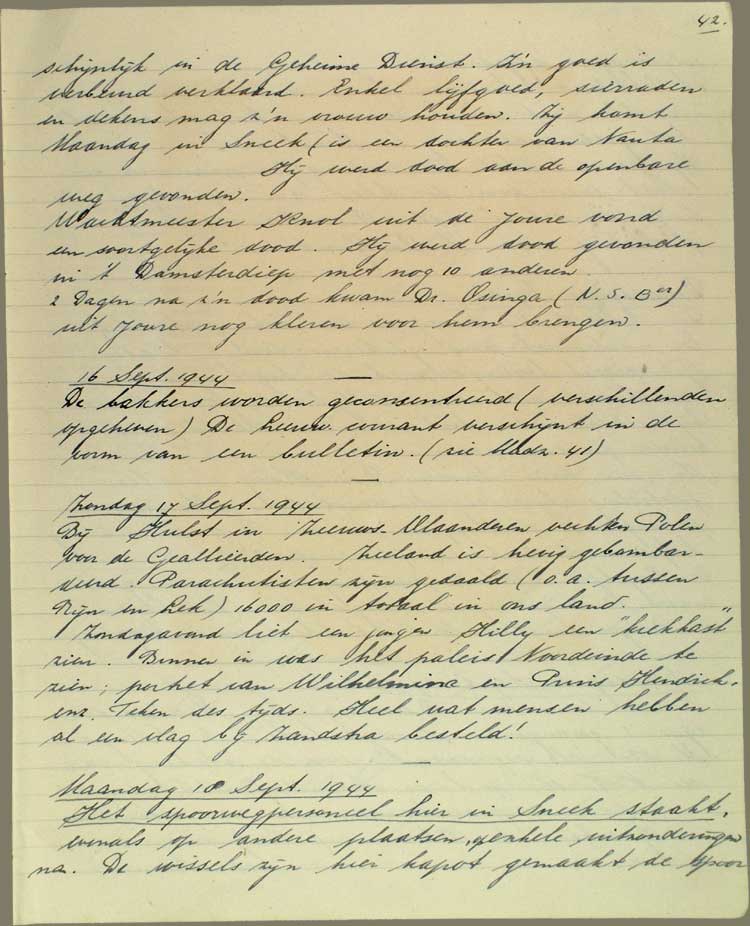 42.
schijnlijk in de Geheime Dienst. Z'n goed is
verbeurd verklaard. Enkel lijfgoed, sierraden
en dekens mag z'n vrouw houden. Zij komt
Maandag in Sneek (is een dochter van Nauta
Hij werd dood aan de openbare
weg gevonden.
Wachtmeester Knol uit de Joure vond
een soortgelijke dood. Hij werd dood gevonden
in 't Damsterdiep met nog 10 anderen.
2 Dagen na z'n dood kwam Dr. Osinga (N.S.Ber)
uit Joure nog kleren voor hem brengen.
16 Sept. 1944
De bakkers worden geconsentreerd (verschillenden
opgeheven) De Leeuw. courant verschijnt in de
vorm van een bulletin. (zie bladz. 41)
Zondag 17 Sept. 1944
Bij Hulst in Zeeuws-Vlaanderen vechten Polen
voor de Geallieerden. Zeeland is hevig gebombar-
deerd. Parachutisten zijn gedaald (o.a. tussen
Rijn en Lek) 16000 in totaal in ons land.
Zondagavond liet een jongen Hilly een "kiekkast"
zien. Binnen in was het paleis Noordeinde te
zien; portret van Wilhelmina en Prins Hendrik.
enz. Teken des tijds. Heel wat mensen hebben
al een vlag bij Zandstra besteld!
Maandag 18 Sept. 1944
Het spoorwegpersoneel hier in Sneek staakt,
evenals op andere plaatsen, op enkele uitzonderingen
na. De wissels zijn hier kapot gemaakt de spoor